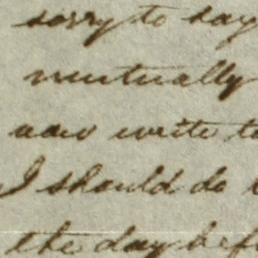 sorry to say
mutually
now write to
I should do
the day bef